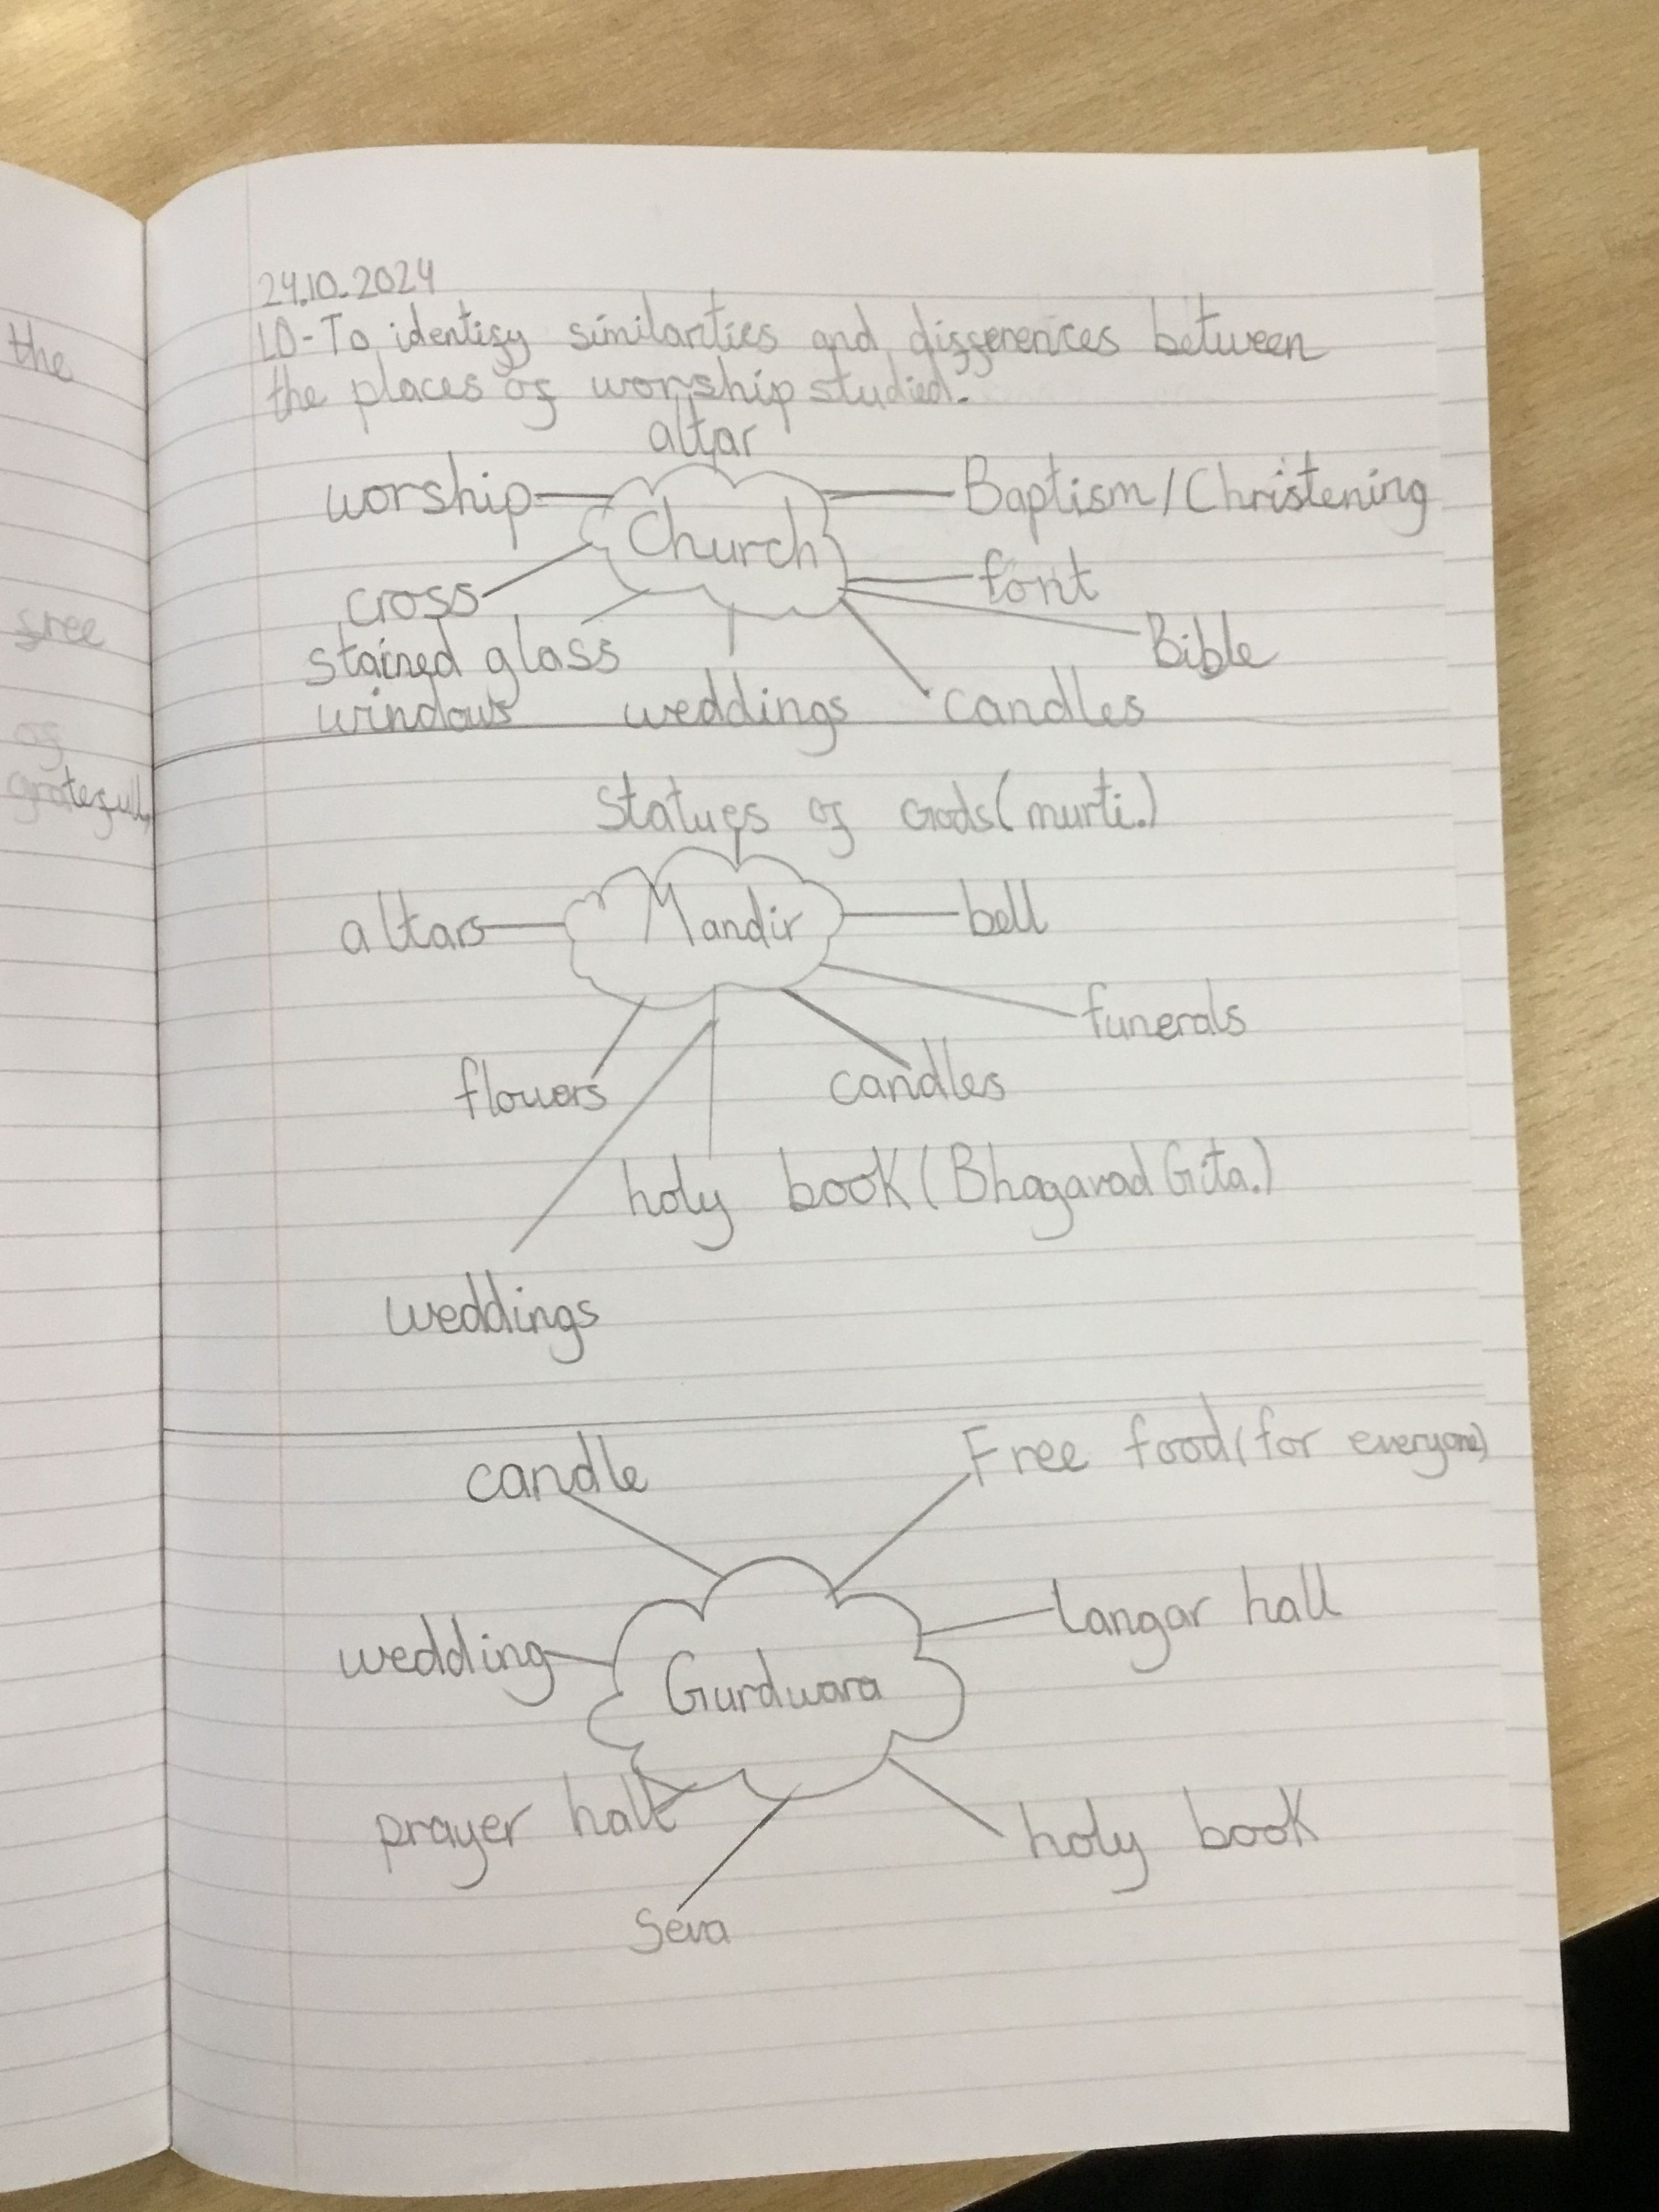 the
free
of
grateful
24.10.2024
LO-To identify similarities and differences between
the places of worship studied.
altar
worship
Church
Baptism/Christening
cross
font
stained glass
windows
Bible
weddings
candles
Statues of Gods(murti.)
altars
Mandir
bell
funerals
flowers
candles
holy book(Bhagavad Gita.)
weddings
candle
Free food(for everyone)
wedding
Gurdwara
Langar hall
prayer hall
holy book
Seva